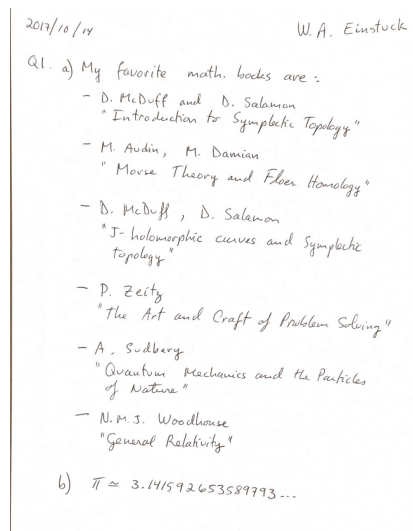 2017/10/14 W. A. Einstuck
Q1. a) My favorite math. books are :
- D. McDuff and D. Salamon
"Introduction to Symplectic Topology"
- M. Audin, M. Damian
"Morse Theory and Floer Homology"
- D. McDuff, D. Salamon
"J-holomorphic curves and Symplectic
topology"
- P. Zeitz
"The Art and Craft of Problem Solving"
- A. Sudbery
"Quantum Mechanics and the Particles
of Nature"
- N.M.J. Woodhouse
"General Relativity"
b) π ≃ 3.141592653589793...